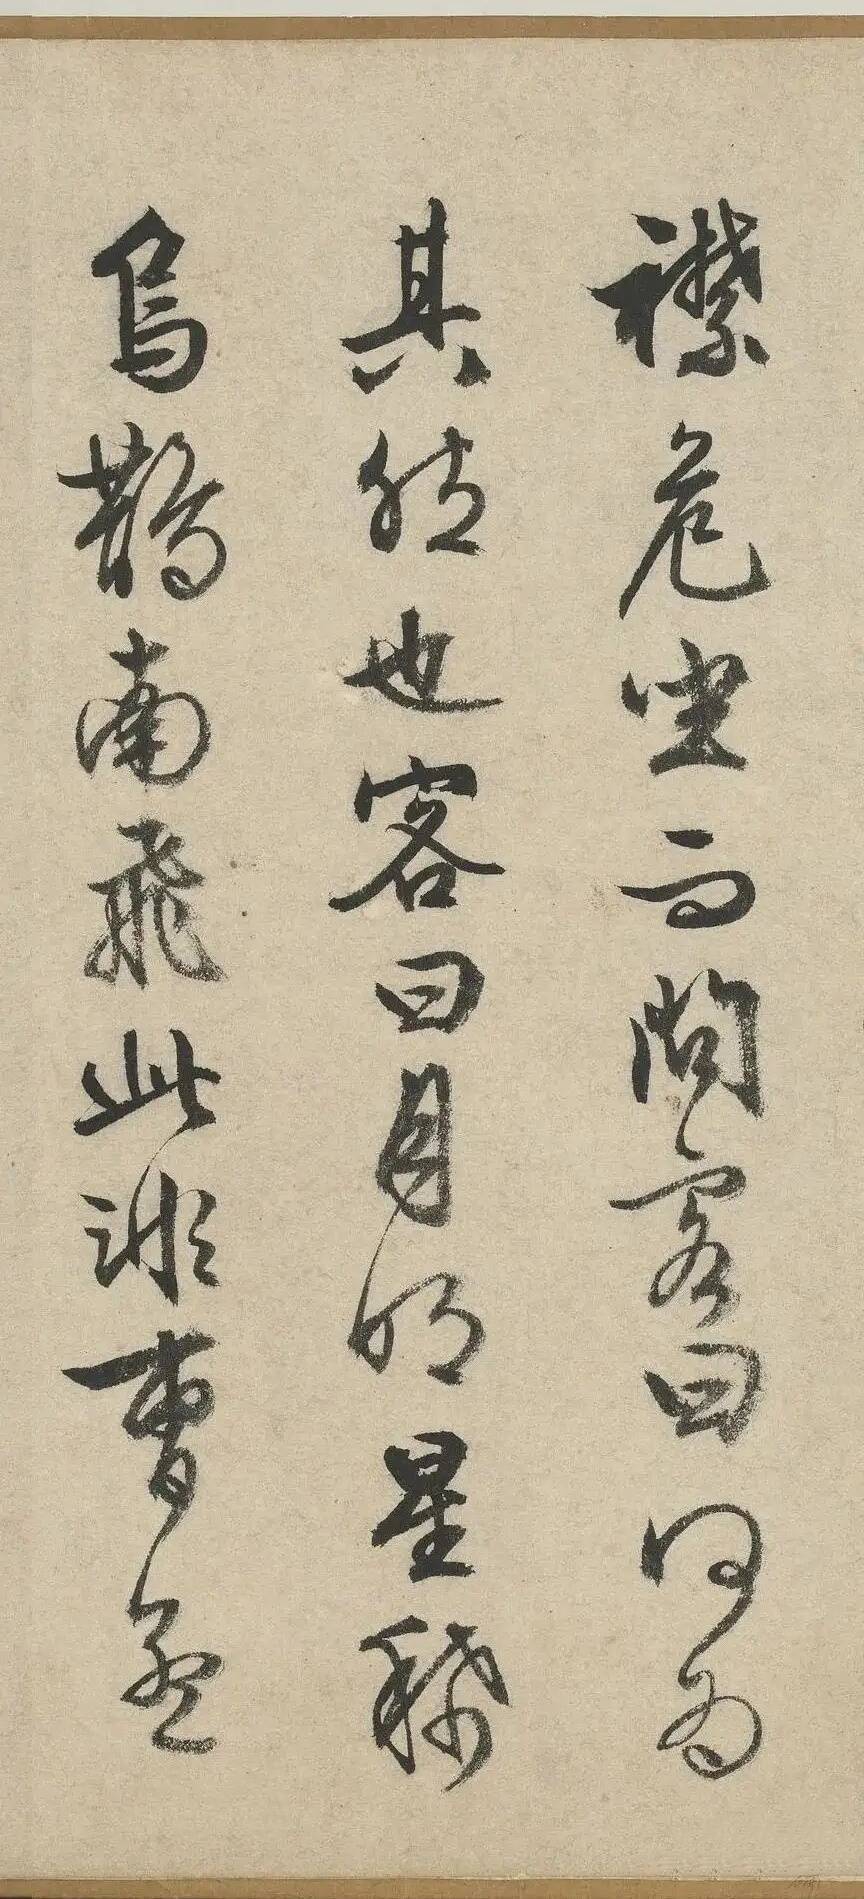 襟危坐而問客曰何為
其然也客曰月明星稀
烏鵲南飛此非曹孟